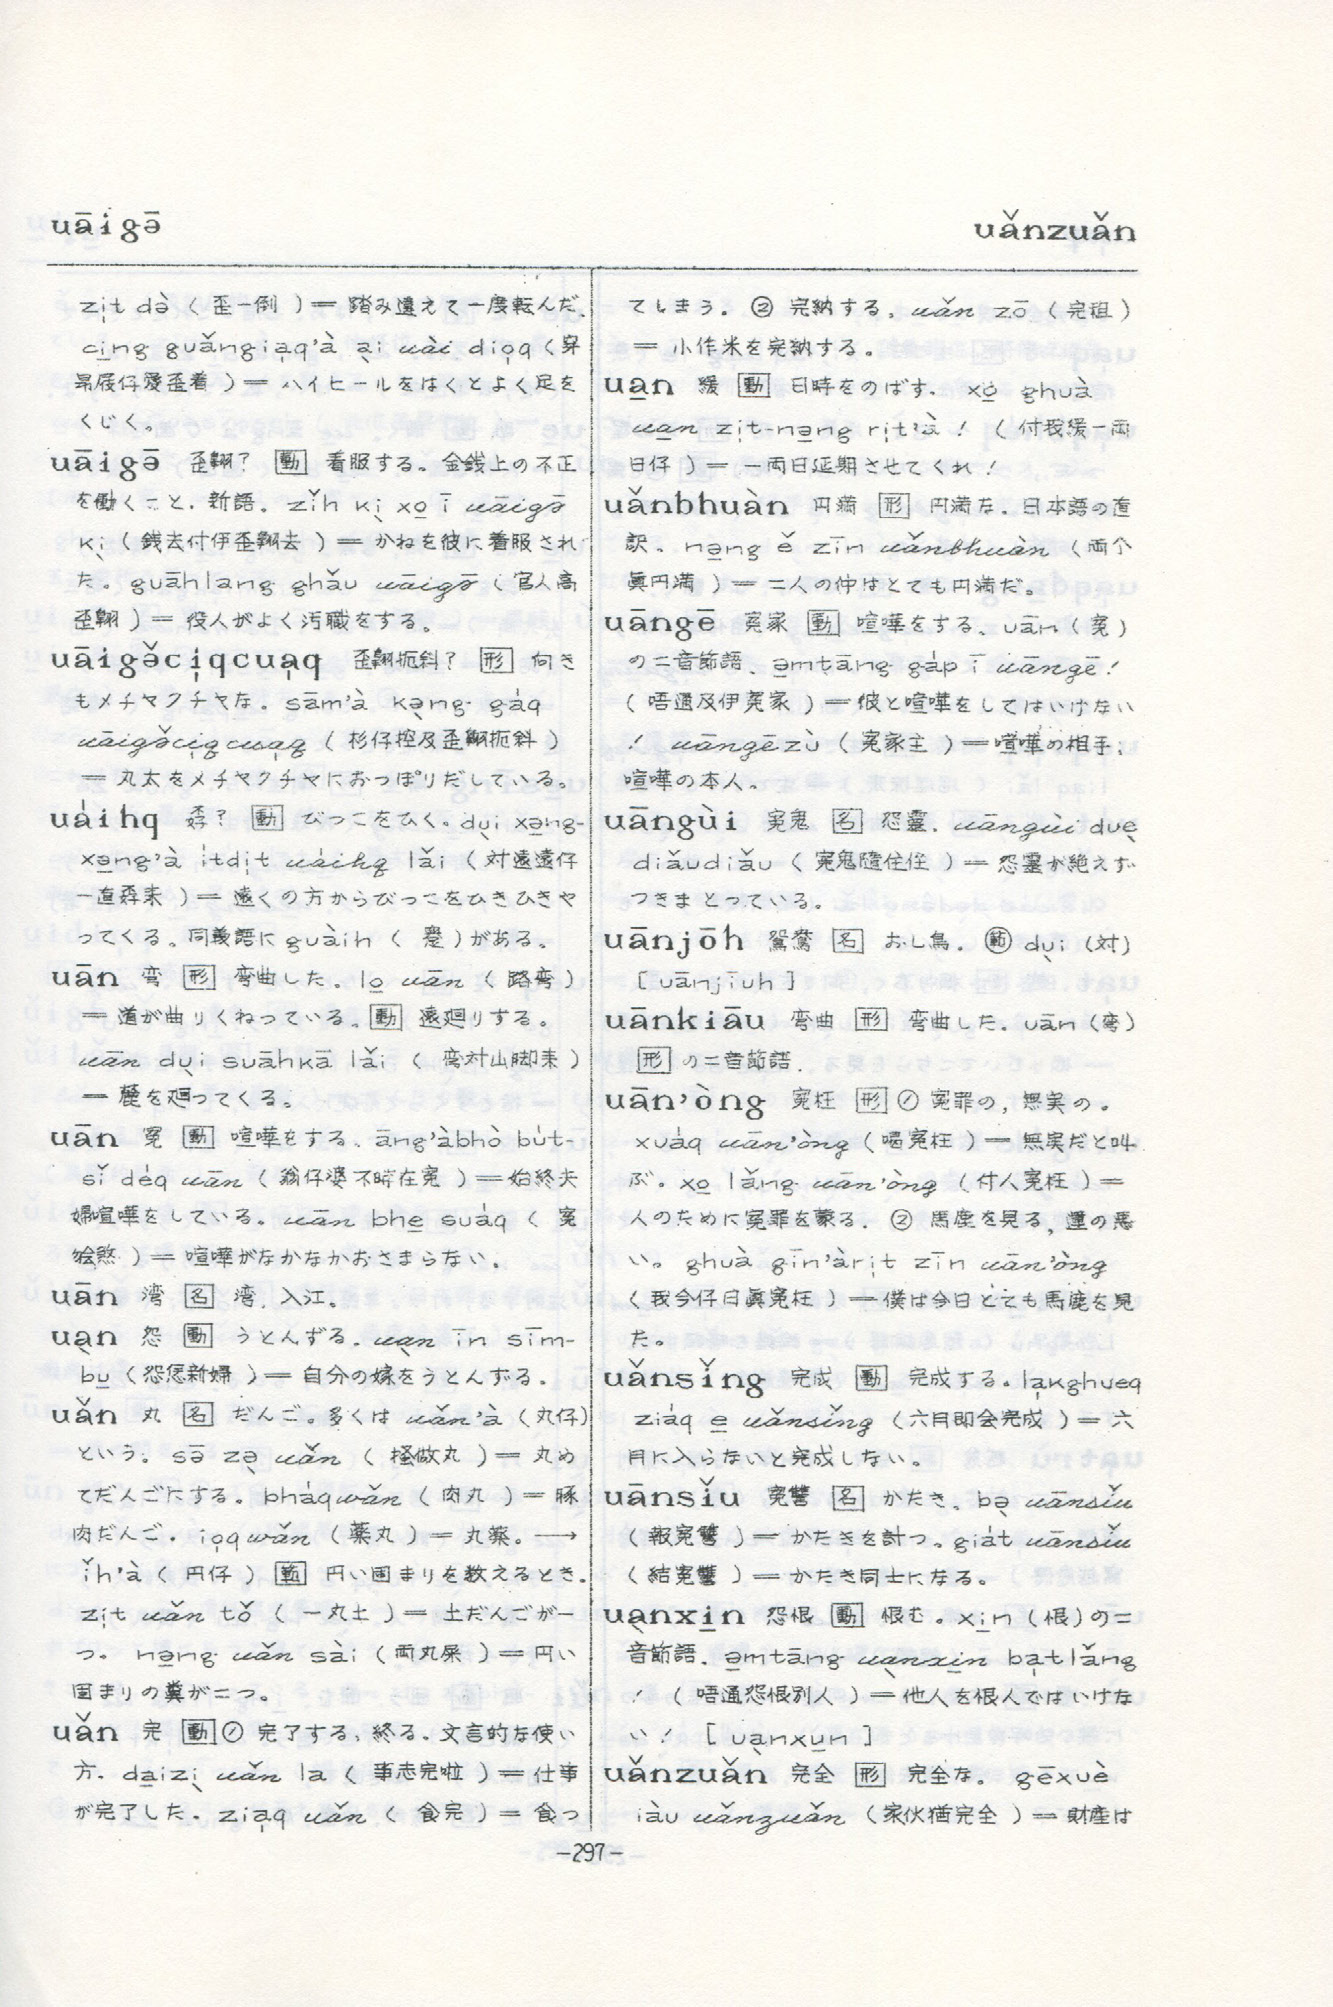 uāigə̄
uǎnzuǎn
zịt də̀ (歪一倒)＝踏み違えて一度転んだ.
cịng guǎngiạq'à ại uài diọq (穿
昂屐仔愛歪着)＝ハイヒールをはくとよく足を
くじく。
uāigə̄ 歪翱? 動 着服する。金銭上の不正
を働くこと. 新語。zǐh kị xo̲ ī uāigə̄
kị (銭去付伊歪翱去)＝かねを彼に着服され
た。guāhlang ghǎu uāigə̄ (官人高
歪翱)＝役人がよく汚職をする。
uāigə̌cịqcuạq 歪翱扼斜? 形 向き
もメチャクチャな。sām'à kạng gáq
uāigə̌cịqcuạq (杉仔控及歪翱扼斜)
＝丸太をメチャクチャにおっぽりだしている。
uáihq 孬? 動 びっこをひく。dụi xạng-
xạng'à ítdịt uáihq lǎi (対遠遠仔
一直孬来)＝遠くの方からびっこをひきひきや
ってくる。同義語に guàih ( )がある。
uān 弯 形 弯曲した。lo̲ uān (路弯)
＝道が曲りくねっている。動 遠廻りする。
uān dụi suāhkā lǎi (弯対山脚来)
＝麓を廻ってくる。
uān 冤 動 喧嘩をする. āng'àbhò bút-
sǐ déq uān (翁仔婆不時在冤)＝始終夫
婦喧嘩をしている。uān bhe̲ suáq (冤
煞)＝喧嘩がなかなかおさまらない.
uān 湾 名 湾. 入江。
uạn 怨 動 うとんずる. uạn īn sīm-
bu̲ (怨恁新婦)＝自分の嫁をうとんずる.
uǎn 丸 名 だんご。多くは uǎn'à (丸仔)
という。sə̄ zə̣ uǎn (搔做丸)＝丸め
てだんごにする。bháquǎn (肉丸)＝豚
肉だんご. iọquǎn (薬丸)＝丸薬。→
ǐh'à (円仔) 範 円い固まりを数えるとき.
zịt uǎn tǒ (一丸土)＝土だんごが一
つ。nạng uǎn sài (両丸屎)＝円い
固まりの糞が二つ。
uǎn 完 動① 完了する, 終る. 文言的な使い
方. dạizị uǎn la (事志完啦)＝仕事
が完了した. ziạq uǎn (食完)＝食っ
てしまう. ② 完納する. uǎn zō (完租)
＝小作米を完納する。
uan 緩 動 日時をのばす. xo̲ ghuà
uan zịt-nạng rịt'à! (付我緩一両
日仔)＝一両日延期させてくれ!
uǎnbhuàn 円満 形 円満な. 日本語の直
訳. nạng ě zīn uǎnbhuàn (両个
眞円満)＝二人の仲はとても円満だ。
uāngē 冤家 動 喧嘩をする. uān (冤)
の二音節語. əmtāng gáp ī uāngē!
(唔通及伊冤家)＝彼と喧嘩をしてはいけない
! uāngēzù (冤家主)＝喧嘩の相手,
喧嘩の本人。
uāngùi 冤鬼 名 怨靈. uāngùi duẹ
diǎudiǎu (冤鬼隨住住)＝怨靈が絶えず
つきまとっている.
uānjōh 鴛鴦 名 おし鳥. 範 dụi (対)
[uānjīuh]
uānkiāu 弯曲 形 弯曲した. uān (弯)
形 の二音節語.
uān'òng 冤枉 形① 冤罪の, 無実の。
xuáq uān'òng (喝冤枉)＝無実だと叫
ぶ。xo̲ lǎng uān'òng (付人冤枉)＝
人のために冤罪を蒙る. ② 馬鹿を見る, 運の悪
い。ghuà gīn'àrịt zīn uān'òng
(我今仔日眞冤枉)＝僕は今日とても馬鹿を見
た。
uǎnsǐng 完成 動 完成する。lạkghueq
ziáq e̲ uǎnsǐng (六月即会完成)＝六
月に入らないと完成しない。
uānsǐu 冤讐 名 かたき. bə̣ uānsǐu
(報冤讐)＝かたきを討つ。giát uānsǐu
(結冤讐)＝かたき同士になる。
uạnxịn 怨恨 動 恨む。xịn (恨)の二
音節語. əmtāng uạnxịn bạtlǎng
! (唔通怨恨別人)＝他人を恨んではいけな
い! [uạnxu̲n]
uǎnzuǎn 完全 形 完全な。gēxuè
iàu uǎnzuǎn (家伙猶完全)＝財産は
-297-